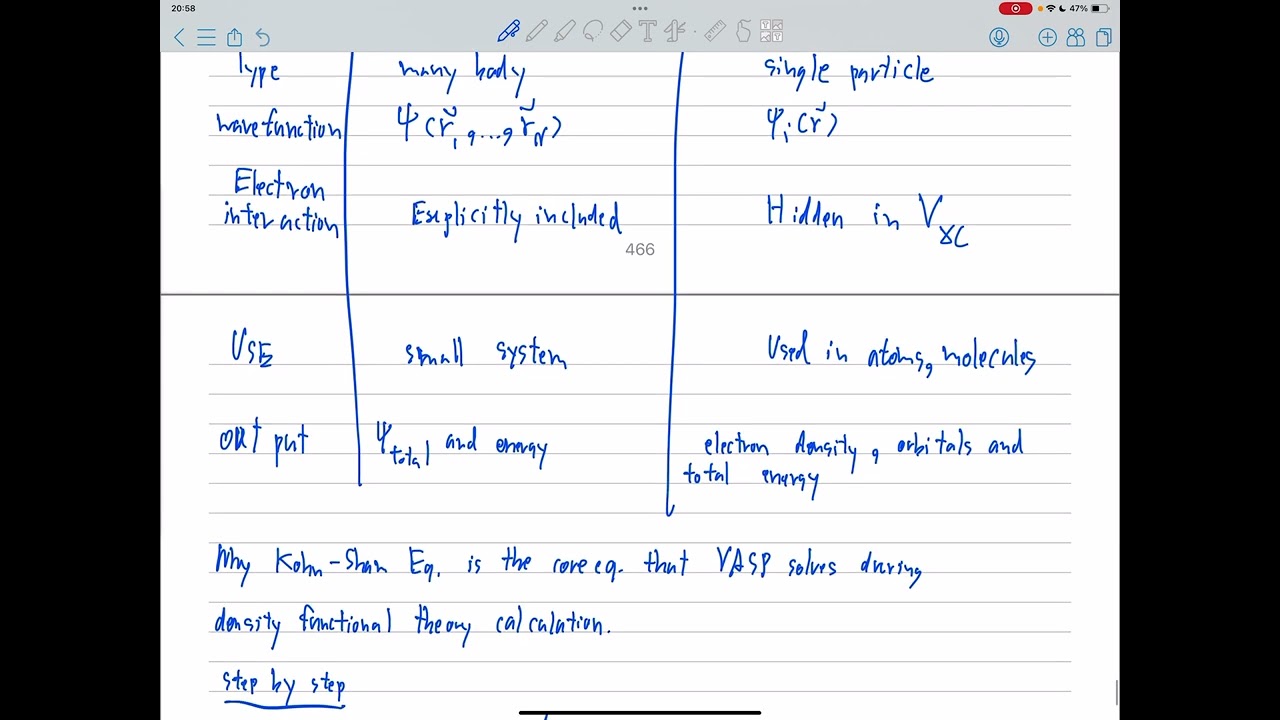 20:58
47%
Type many body single particle
wavefunction Ψ(r⃗₁, ..., r⃗_N) φᵢ(r⃗)
Electron
interaction Explicitly included Hidden in V_XC
466
USE small system Used in atoms, molecules
output Ψ_total and energy electron density, orbitals and
total energy
Why Kohn-Sham Eq. is the core eq. that VASP solves during
density functional theory calculation.
step by step